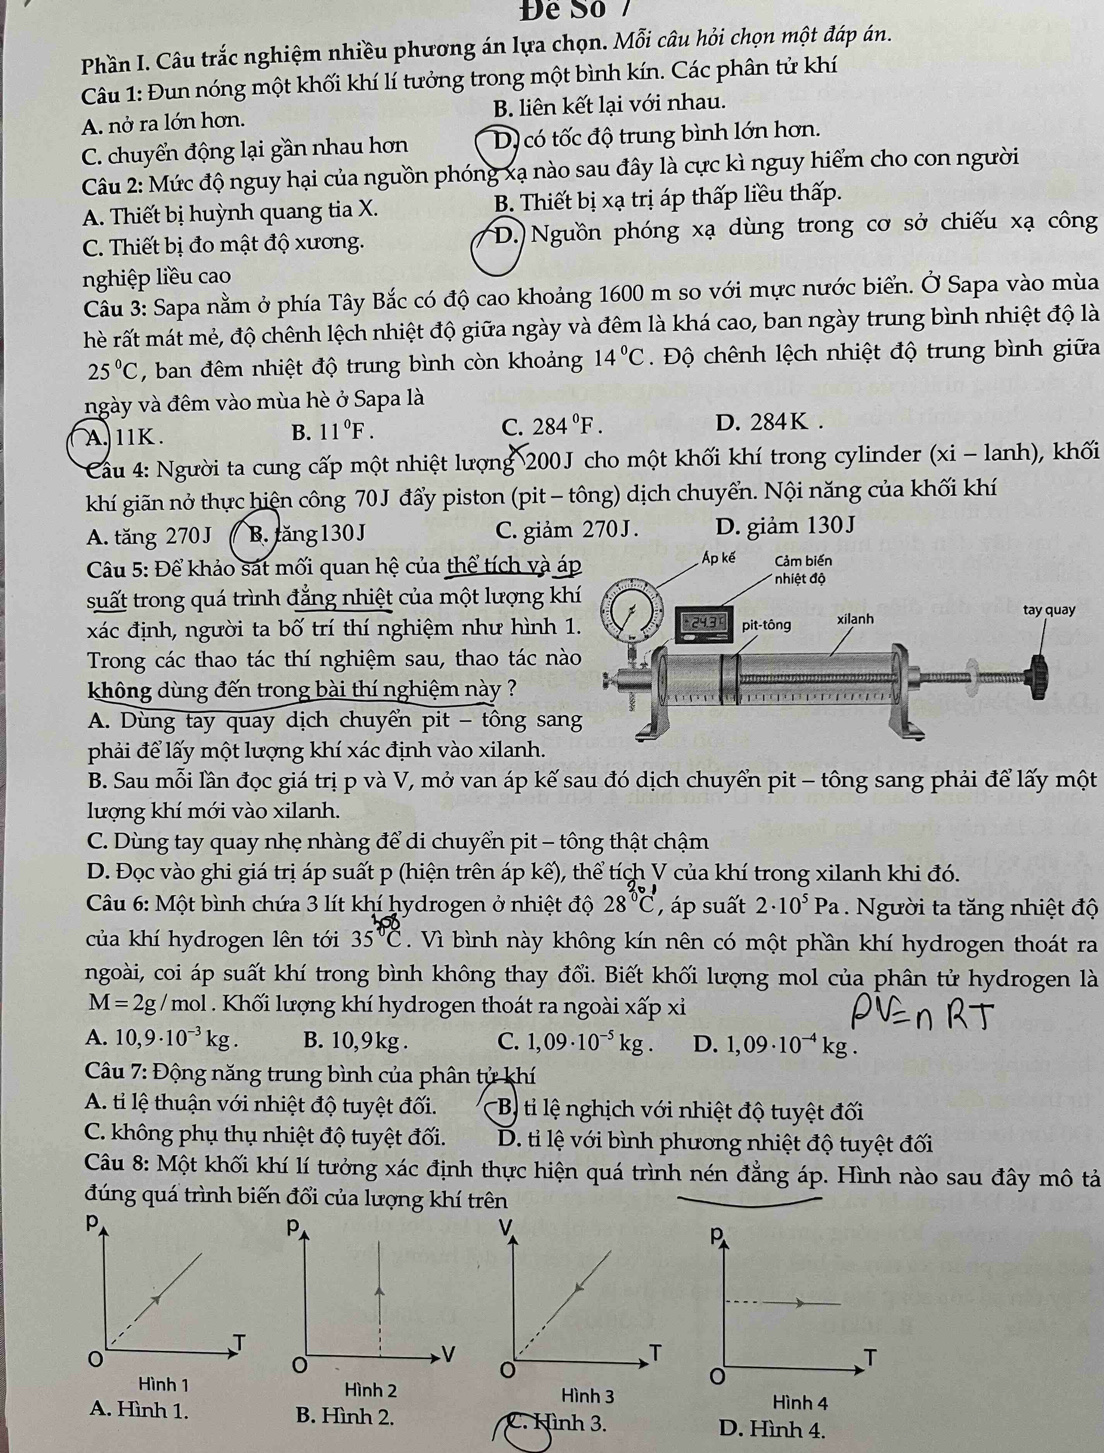 Đề Số 7
Phần I. Câu trắc nghiệm nhiều phương án lựa chọn. Mỗi câu hỏi chọn một đáp án.
Câu 1: Đun nóng một khối khí lí tưởng trong một bình kín. Các phân tử khí
A. nở ra lớn hơn.
B. liên kết lại với nhau.
C. chuyển động lại gần nhau hơn
D. có tốc độ trung bình lớn hơn.
Câu 2: Mức độ nguy hại của nguồn phóng xạ nào sau đây là cực kì nguy hiểm cho con người
A. Thiết bị huỳnh quang tia X.
B. Thiết bị xạ trị áp thấp liều thấp.
C. Thiết bị đo mật độ xương.
D. Nguồn phóng xạ dùng trong cơ sở chiếu xạ công
nghiệp liều cao
Câu 3: Sapa nằm ở phía Tây Bắc có độ cao khoảng 1600 m so với mực nước biển. Ở Sapa vào mùa
hè rất mát mẻ, độ chênh lệch nhiệt độ giữa ngày và đêm là khá cao, ban ngày trung bình nhiệt độ là
25 ⁰C, ban đêm nhiệt độ trung bình còn khoảng 14 ⁰C. Độ chênh lệch nhiệt độ trung bình giữa
ngày và đêm vào mùa hè ở Sapa là
A. 11K.
B. 11 ⁰F.
C. 284 ⁰F.
D. 284K .
Câu 4: Người ta cung cấp một nhiệt lượng 200J cho một khối khí trong cylinder (xi – lanh), khối
khí giãn nở thực hiện công 70J đẩy piston (pit – tông) dịch chuyển. Nội năng của khối khí
A. tăng 270J
B. tăng130J
C. giảm 270J.
D. giảm 130J
Câu 5: Để khảo sát mối quan hệ của thể tích và áp
suất trong quá trình đẳng nhiệt của một lượng khí
xác định, người ta bố trí thí nghiệm như hình 1.
Trong các thao tác thí nghiệm sau, thao tác nào
không dùng đến trong bài thí nghiệm này ?
A. Dùng tay quay dịch chuyển pit – tông sang
phải để lấy một lượng khí xác định vào xilanh.
Áp kế
Cảm biến
nhiệt độ
24.3
pit-tông
xilanh
tay quay
B. Sau mỗi lần đọc giá trị p và V, mở van áp kế sau đó dịch chuyển pit – tông sang phải để lấy một
lượng khí mới vào xilanh.
C. Dùng tay quay nhẹ nhàng để di chuyển pit – tông thật chậm
D. Đọc vào ghi giá trị áp suất p (hiện trên áp kế), thể tích V của khí trong xilanh khi đó.
Câu 6: Một bình chứa 3 lít khí hydrogen ở nhiệt độ 28 ⁰C, áp suất 2·10⁵ Pa. Người ta tăng nhiệt độ
của khí hydrogen lên tới 35 ⁰C. Vì bình này không kín nên có một phần khí hydrogen thoát ra
ngoài, coi áp suất khí trong bình không thay đổi. Biết khối lượng mol của phân tử hydrogen là
M = 2g / mol . Khối lượng khí hydrogen thoát ra ngoài xấp xỉ
PV = nRT
A. 10,9·10⁻³ kg.
B. 10,9kg.
C. 1,09·10⁻⁵ kg.
D. 1,09·10⁻⁴ kg.
Câu 7: Động năng trung bình của phân tử khí
A. tỉ lệ thuận với nhiệt độ tuyệt đối.
B. tỉ lệ nghịch với nhiệt độ tuyệt đối
C. không phụ thụ nhiệt độ tuyệt đối.
D. tỉ lệ với bình phương nhiệt độ tuyệt đối
Câu 8: Một khối khí lí tưởng xác định thực hiện quá trình nén đẳng áp. Hình nào sau đây mô tả
đúng quá trình biến đổi của lượng khí trên
p
T
O
Hình 1
p
V
O
Hình 2
V
T
O
Hình 3
p
T
O
Hình 4
A. Hình 1.
B. Hình 2.
C. Hình 3.
D. Hình 4.